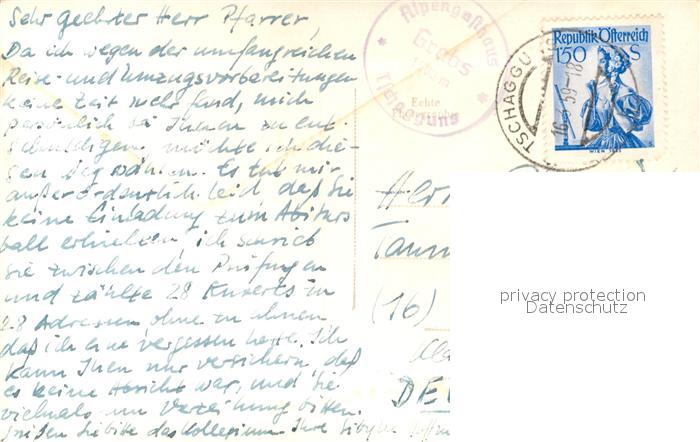 Sehr geehrter Herr Pfarrer,
Da ich wegen der umfangreichen
Reise- und Umzugsvorbereitungen
keine Zeit mehr fand, mich
persönlich bei Ihnen zu ent-
schuldigen, möchte ich die-
sen Weg wählen. Es tut mir
außerordentlich leid, daß Sie
keine Einladung zum Abiturs
ball erhielten, ich schrieb
sie zwischen den Prüfungen
und zählte 28 Kuverts zu
28 Adressen ohne zu ahnen
daß ich eine vergessen hatte. Ich
kann Ihnen nur versichern, daß
es keine Absicht war, und Sie
vielmals um Verzeihung bitten.
Grüßen Sie bitte das Kollegium Ihre Sibylle
Alpengasthaus
Grabs
Tschagguns
Echte
Republik Österreich
150 S
WIEN
TSCHAGGU
16. 59-18
Herr
Tann
(16)
DE
privacy protection
Datenschutz